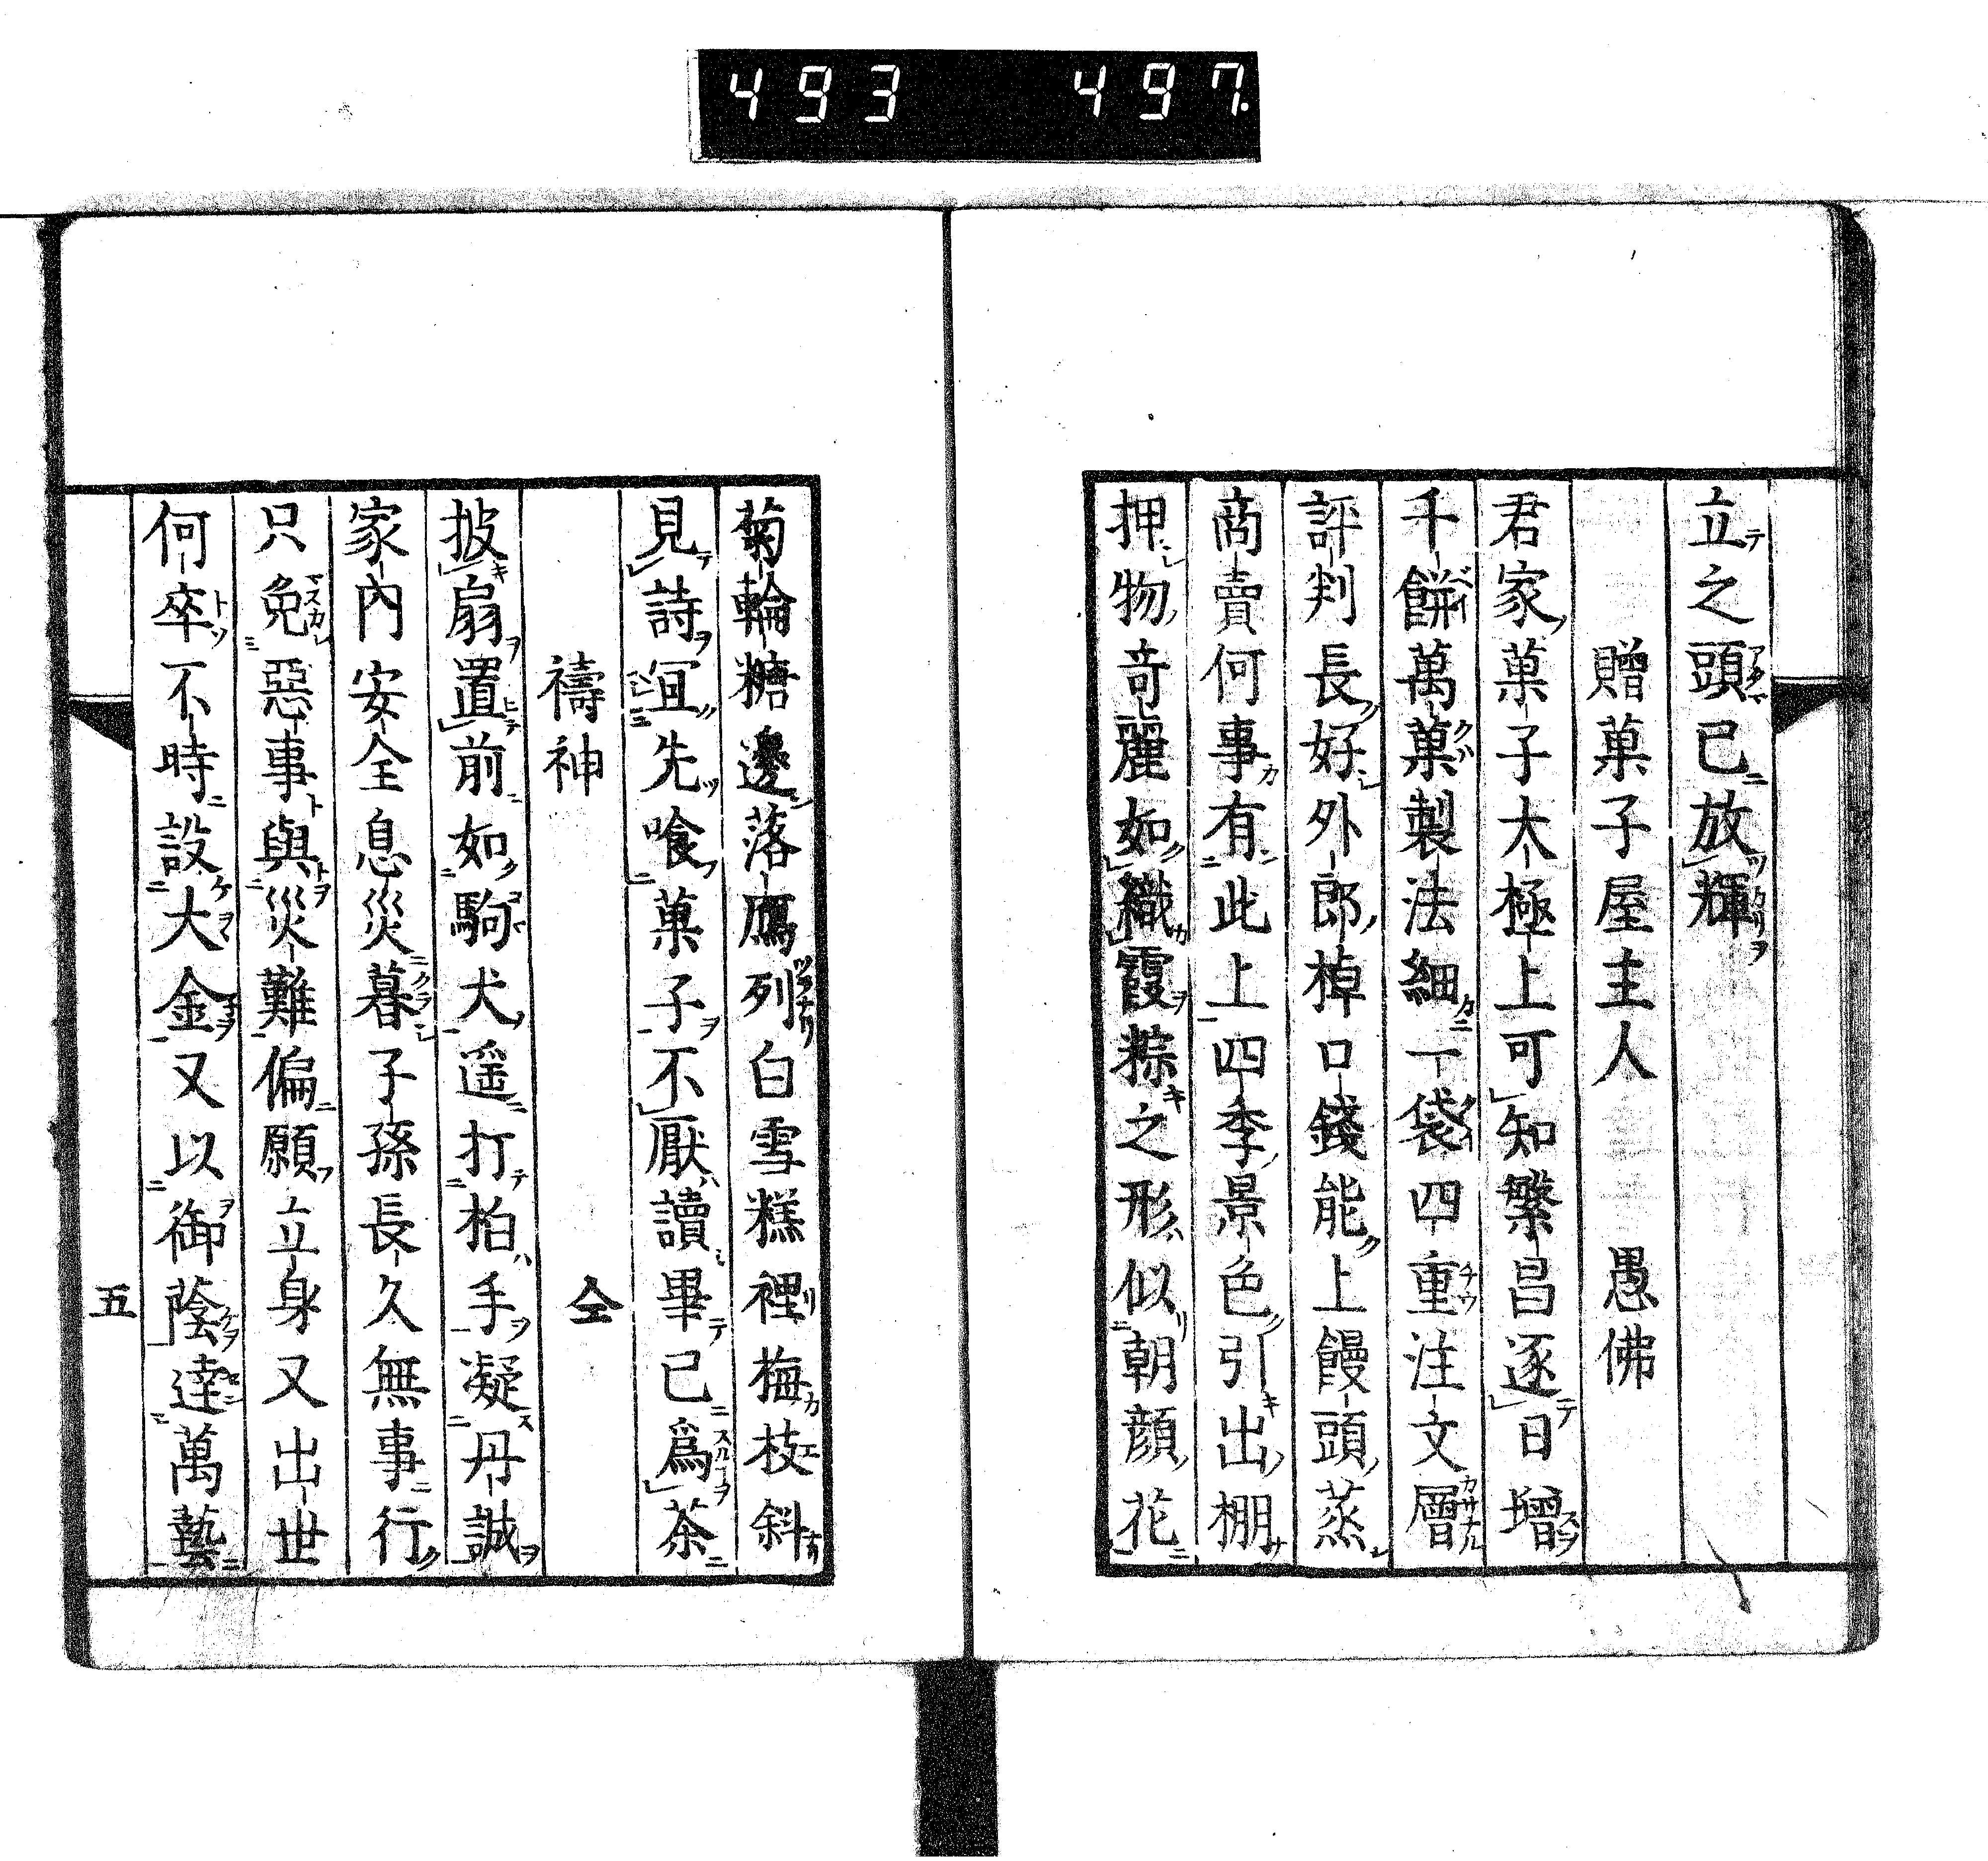 493 497.
立之頭已放輝
贈菓子屋主人 愚佛
君家菓子太極上可知繁昌逐日增
千餅萬菓製法細一袋四重注文層
評判長好外郎棹口錢能上饅頭蒸
商賣何事有此上四季景色引出棚
押物奇麗如織霞粽之形似朝顔花
菊輪糖邊落鴈列白雪糕裡梅枝斜
見詩冝先喰菓子不厭讀畢已爲茶
禱神 仝
披扇置前如駒犬遥打拍手凝丹誠
家内安全息災暮子孫長久無事行
只免惡事與災難偏願立身又出世
何卒不時設大金又以御蔭達萬藝
五